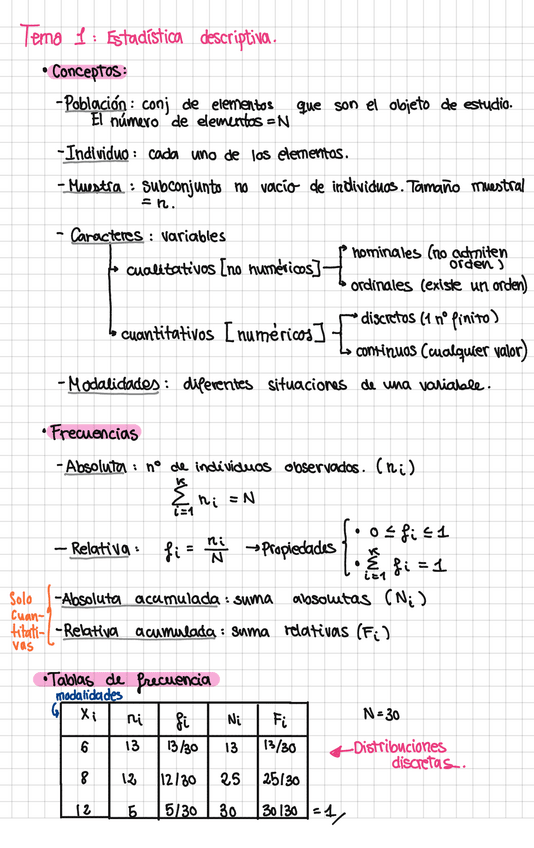 Tema 1: Estadística descriptiva.
• Conceptos:
- Población: conj de elementos que son el objeto de estudio.
El número de elementos = N
- Individuo: cada uno de los elementos.
- Muestra: subconjunto no vacío de individuos. Tamaño muestral
= n.
- Caracteres: variables
→ cualitativos [no numéricos]
→ nominales (no admiten
orden)
→ ordinales (existe un orden)
→ cuantitativos [numéricos]
→ discretos (1 nº finito)
→ continuos (cualquier valor)
- Modalidades: diferentes situaciones de una variable.
• Frecuencias
- Absoluta: nº de individuos observados. (ni)
K Σ i=1 ni = N
- Relativa: fi = ni/N → Propiedades { • 0 ≤ fi ≤ 1
• K Σ i=1 fi = 1
Solo
cuan-
titati-
vas
- Absoluta acumulada: suma absolutas (Ni)
- Relativa acumulada: suma relativas (Fi)
• Tablas de frecuencia
modalidades
Xi ni fi Ni Fi N=30
6 13 13/30 13 13/30
← Distribuciones
discretas.
8 12 12/30 25 25/30
12 5 5/30 30 30/30 = 1